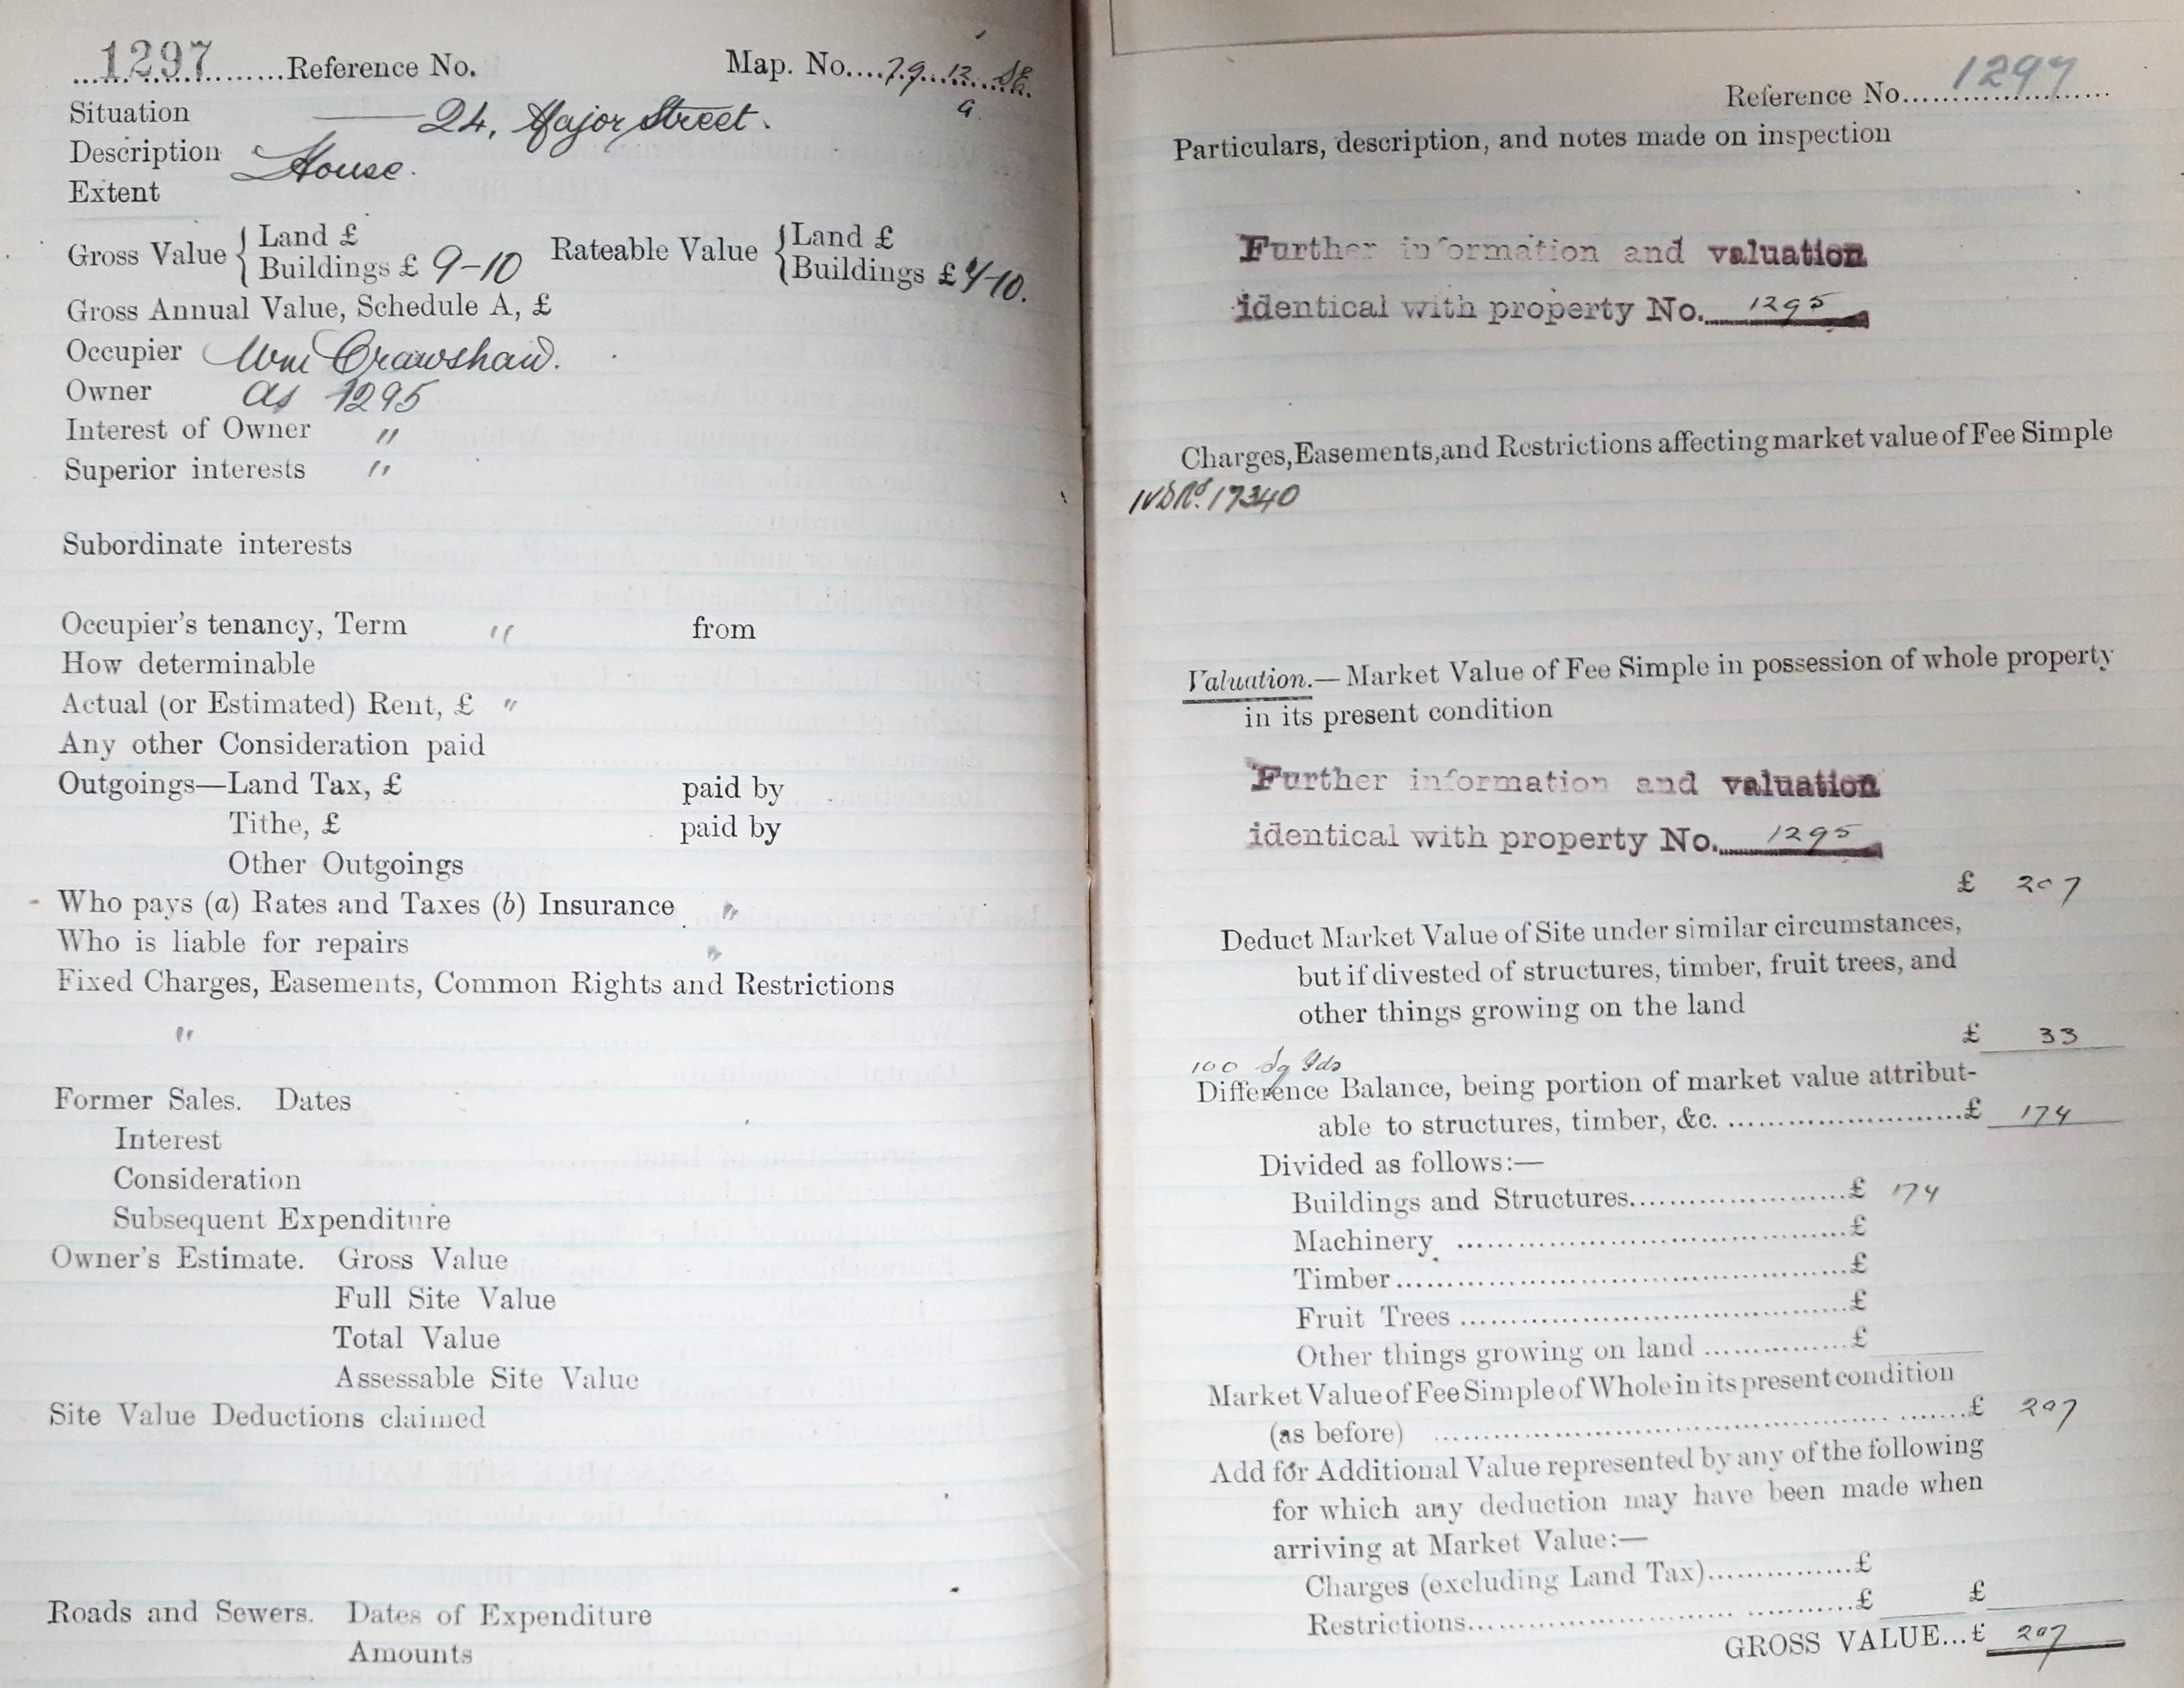 1297 Reference No. Map. No. 79.12 SE
a
Situation 24, Major Street.
Description House.
Extent
Gross Value { Land £
Buildings £ 9-10 Rateable Value { Land £
Buildings £ 7-10.
Gross Annual Value, Schedule A, £
Occupier Wm Crawshaw.
Owner as 1295
Interest of Owner "
Superior interests "
Subordinate interests
Occupier's tenancy, Term " from
How determinable
Actual (or Estimated) Rent, £ "
Any other Consideration paid
Outgoings—Land Tax, £ paid by
Tithe, £ paid by
Other Outgoings
Who pays (a) Rates and Taxes (b) Insurance "
Who is liable for repairs "
Fixed Charges, Easements, Common Rights and Restrictions
"
Former Sales. Dates
Interest
Consideration
Subsequent Expenditure
Owner's Estimate. Gross Value
Full Site Value
Total Value
Assessable Site Value
Site Value Deductions claimed
Roads and Sewers. Dates of Expenditure
Amounts
Reference No. 1297
Particulars, description, and notes made on inspection
Further information and valuation
identical with property No. 1295
Charges, Easements, and Restrictions affecting market value of Fee Simple
No. 17340
Valuation.—Market Value of Fee Simple in possession of whole property
in its present condition
Further information and valuation
identical with property No. 1295
£ 207
Deduct Market Value of Site under similar circumstances,
but if divested of structures, timber, fruit trees, and
other things growing on the land
£ 33
100 Sq Yds
Difference Balance, being portion of market value attribut-
able to structures, timber, &c. £ 174
Divided as follows:—
Buildings and Structures £ 174
Machinery £
Timber £
Fruit Trees £
Other things growing on land £
Market Value of Fee Simple of Whole in its present condition
(as before) £ 207
Add for Additional Value represented by any of the following
for which any deduction may have been made when
arriving at Market Value:—
Charges (excluding Land Tax) £
Restrictions £ £
GROSS VALUE...£ 207